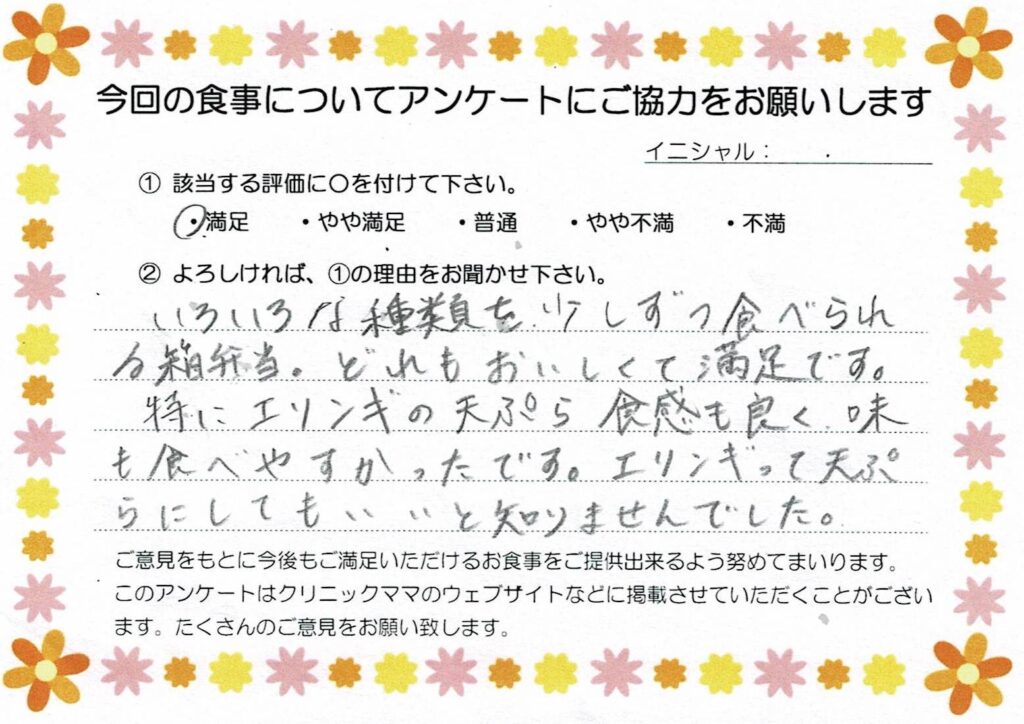 今回の食事についてアンケートにご協力をお願いします
イニシャル：
① 該当する評価に〇を付けて下さい。
・満足 ・やや満足 ・普通 ・やや不満 ・不満
② よろしければ、①の理由をお聞かせ下さい。
いろいろな種類を少しずつ食べられ
る箱弁当。どれもおいしくて満足です。
特にエリンギの天ぷら食感も良く、味
も食べやすかったです。エリンギって天ぷ
らにしてもいいと知りませんでした。
ご意見をもとに今後もご満足いただけるお食事をご提供出来るよう努めてまいります。
このアンケートはクリニックママのウェブサイトなどに掲載させていただくことがござい
ます。たくさんのご意見をお願い致します。